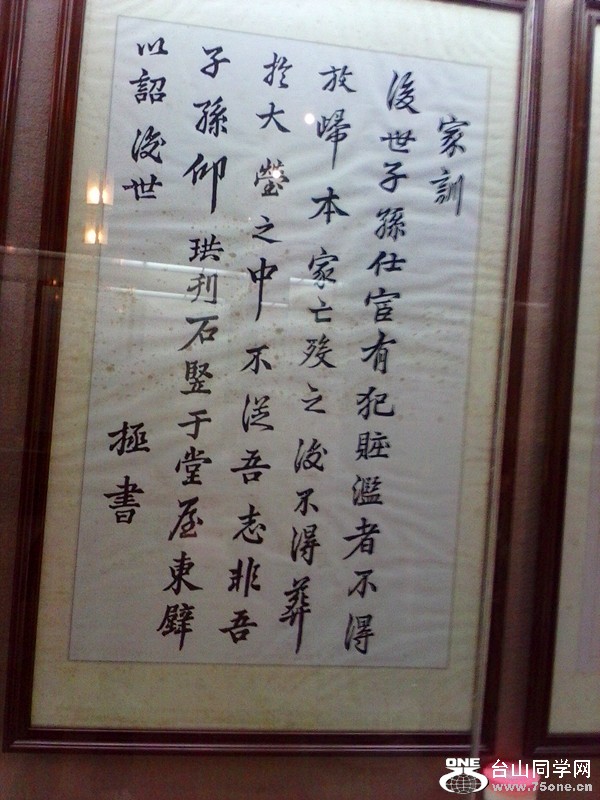 家訓
後世子孫仕宦有犯賍濫者不得
放歸本家亡殁之後不得葬
於大塋之中不従吾志非吾
子孫仰珙刊石竪于堂屋東壁
以詔後世
極書
ONE 台山同学网
www.75one.cn